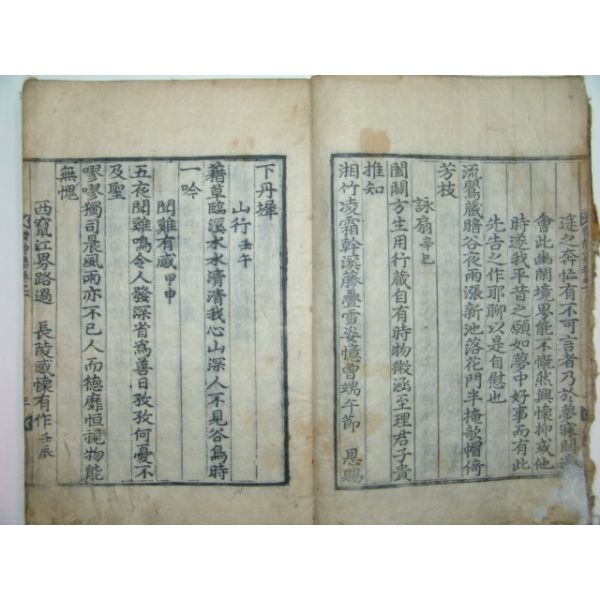 途之奔忙有不可言者乃於夢寐間
會此幽閑境界能不慨然興懷抑或他
時遂我平昔之願如夢中好事而有此
先告之作耶聊以是自慰也
流鶯藏暗谷夜雨漲新池落花門半掩欹帽倚
芳枝
詠扇 辛巳
闔闢方生用行藏自有時物微涵至理君子貴
推知
湘竹凌霜幹溪藤疊雪姿憶曾端午節 恩賜
下丹墀
山行 壬午
藉草臨溪水水清清我心山深人不見谷鳥時
一吟
聞雞有感 甲申
五夜聞雞鳴令人發深省爲善日孜孜何憂不
及聖
嘐嘐獨司晨風雨亦不已人而德靡恒視物能
無愧
西竄江界路過 長陵感懷有作 壬辰
三